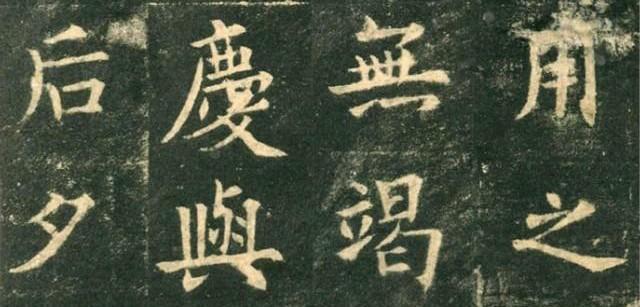 用之
無竭
慶與
后夕